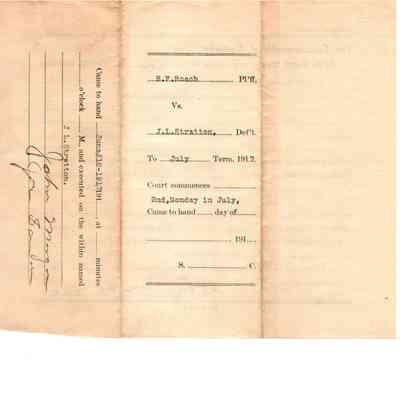 R.F.Roach Pl'ff,
Vs.
J.L.Stratton, Def't.
To July Term, 1917.
Court commences
2nd,Monday in July,
Came to hand day of
191
S. C.
Came to hand at minutes
o'clock M., and executed on the within named
J L.Stratton.
John